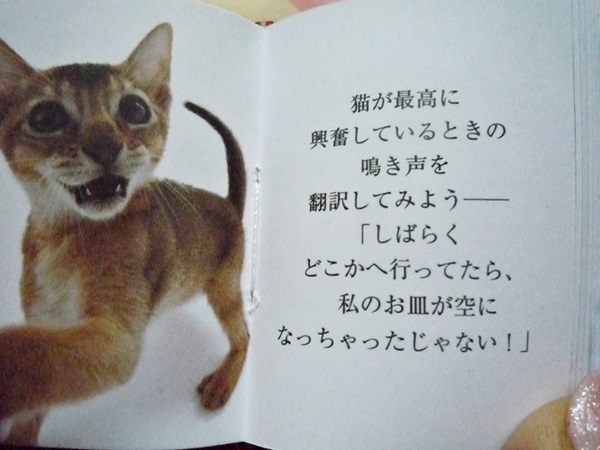 猫が最高に
興奮しているときの
鳴き声を
翻訳してみよう──
「しばらく
どこかへ行ってたら、
私のお皿が空に
なっちゃったじゃない！」